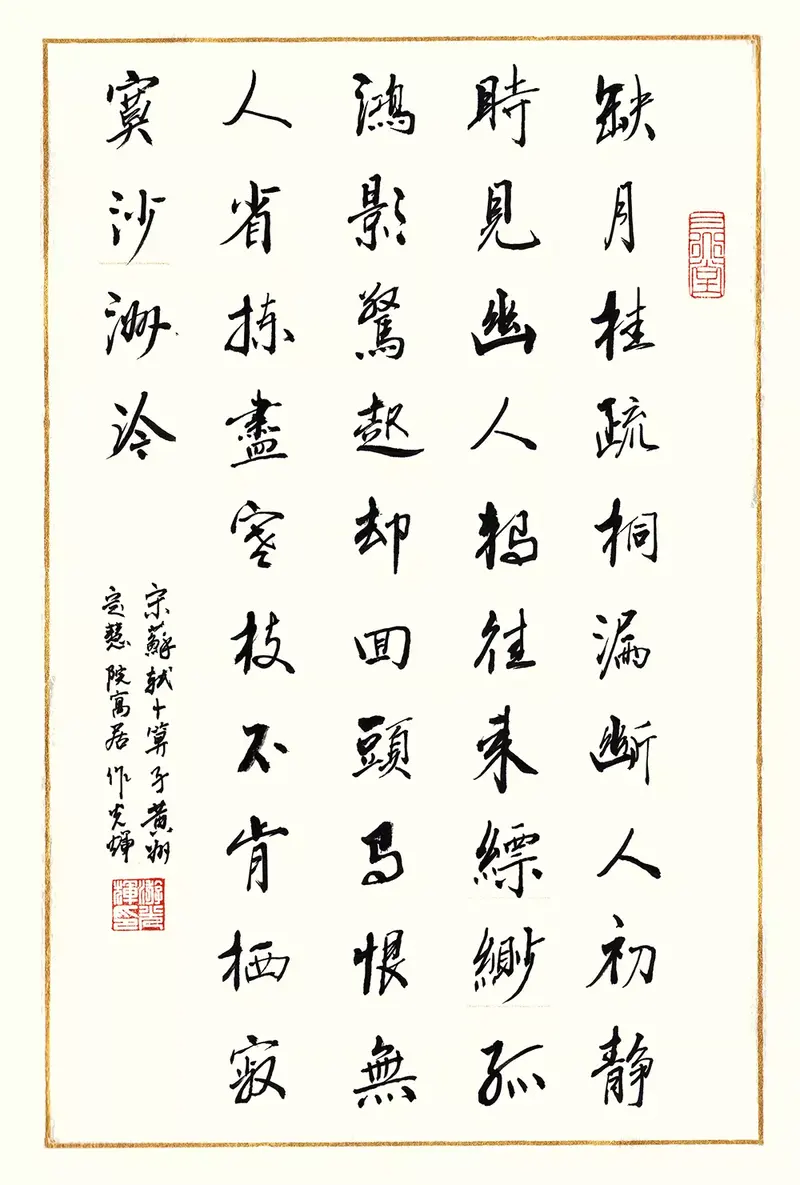 缺月挂疏桐漏斷人初静
時見幽人獨往来縹緲孤
鴻影驚起却回頭有恨無
人省揀盡寒枝不肯栖寂
寞沙洲冷
宋蘇軾卜算子黄州
定慧院寓居作光輝